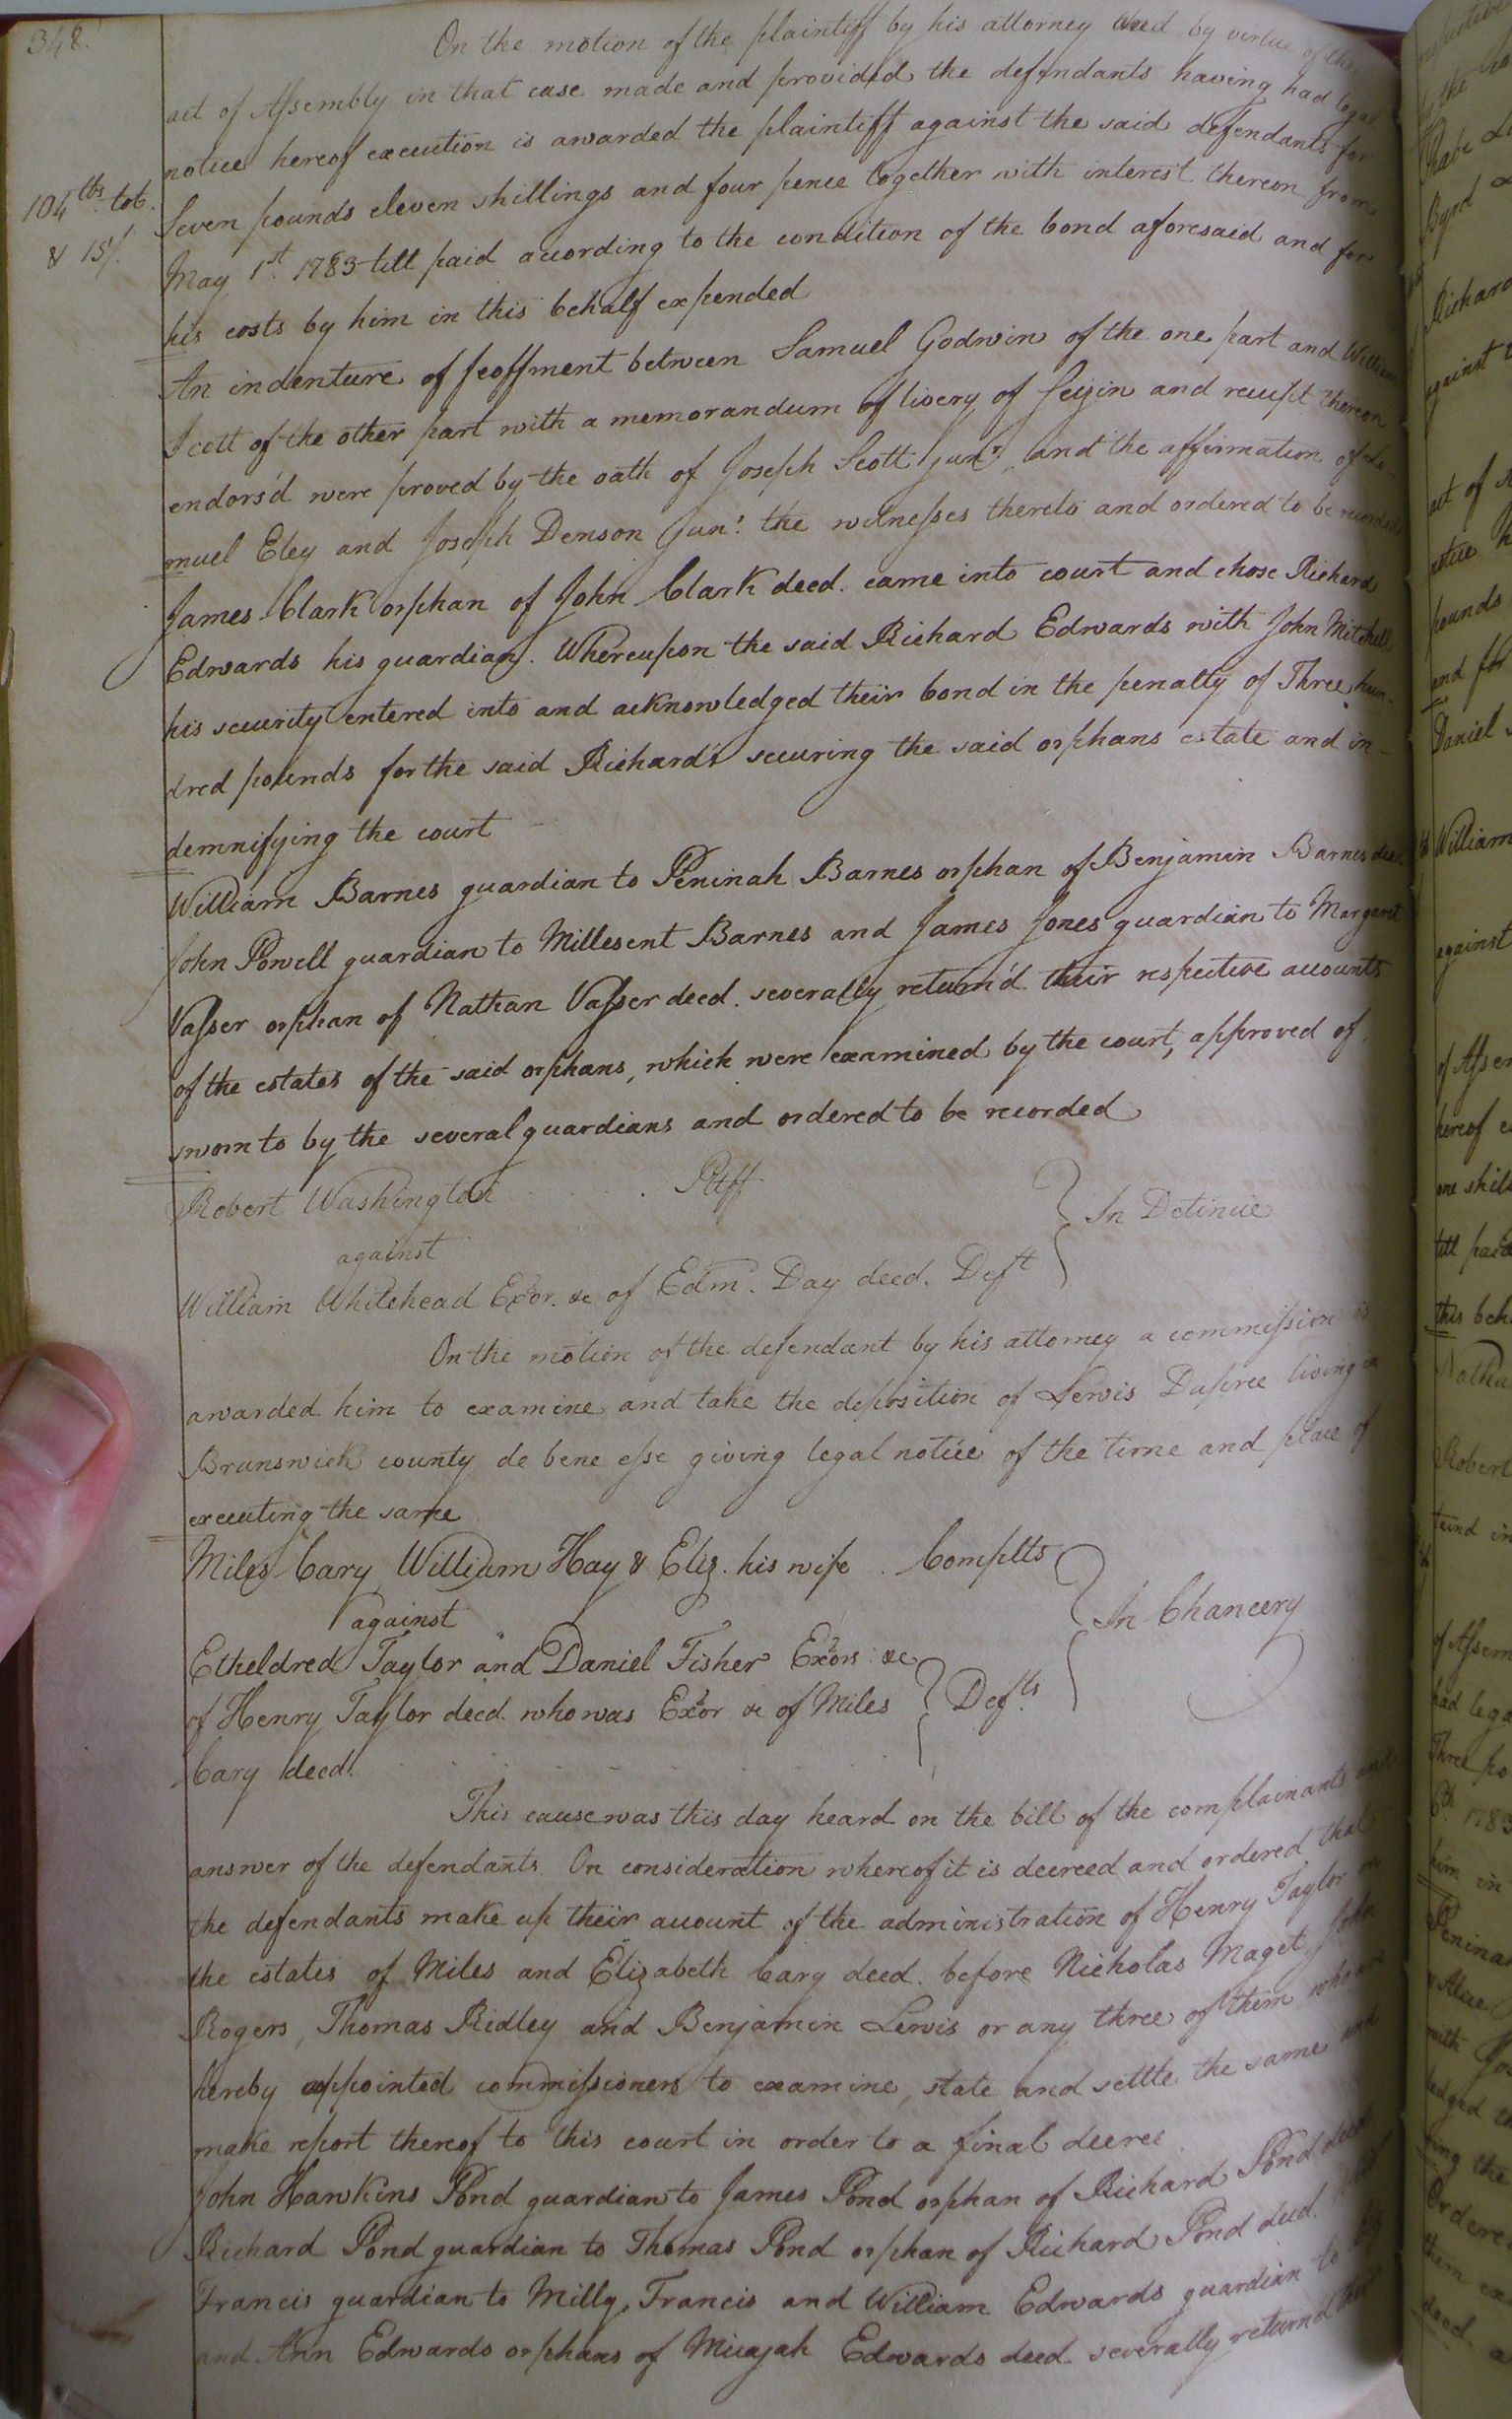 348.
On the motion of the plaintiff by his attorney and by virtue of the
act of Assembly in that case made and provided the defendants having had legal
notice hereof execution is awarded the plaintiff against the said defendants for
104 lbs. tob.
& 15/.
Seven pounds eleven shillings and four pence together with interest thereon from
May 1st. 1783 till paid according to the condition of the bond aforesaid and for
his costs by him in this behalf expended
An indenture of feoffment between Samuel Godwin of the one part and William
Scott of the other part with a memorandum of livery of Seizin and receipt thereon
endors'd were proved by the oath of Joseph Scott junr. and the affirmation of Le-
muel Eley and Joseph Denson Junr. the witnesses thereto and ordered to be recorded
James Clark orphan of John Clark deed. came into court and chose Richard
Edwards his guardian. Whereupon the said Richard Edwards with John Mitchell
his security entered into and acknowledged their bond in the penalty of Three hun-
dred pounds for the said Richard's securing the said orphans estate and in-
demnifying the court
William Barnes guardian to Peninah Barnes orphan of Benjamin Barnes deed
John Powell guardian to Millesent Barnes and James Jones guardian to Margaret
Vasser orphan of Nathan Vasser deed. severally return'd their respective accounts
of the estates of the said orphans, which were examined by the court, approved of
sworn to by the several guardians and ordered to be recorded
Robert Washington . . . . Pltff
against
In Detinue
William Whitehead Exor. &c of Edmd. Day deed. Deft
On the motion of the defendant by his attorney a commission is
awarded him to examine and take the deposition of Lewis Dupree living in
Brunswick county de bene esse giving legal notice of the time and place of
executing the same
Miles Cary William Hay & Eliz. his wife . Complts
against
In Chancery
Etheldred Taylor and Daniel Fisher Exors &c
of Henry Taylor deed. who was Exor &c of Miles
Defts
Cary deed.
This cause was this day heard on the bill of the complainants and
answer of the defendants. On consideration whereof it is decreed and ordered that
the defendants make up their account of the administration of Henry Taylor on
the estates of Miles and Elizabeth Cary deed. before Nicholas Maget, John
Rogers, Thomas Ridley and Benjamin Lewis or any three of them who are
hereby appointed commissioners to examine, state and settle the same and
make report thereof to this court in order to a final decree
John Hawkins Pond guardian to James Pond orphan of Richard Pond deed
Richard Pond guardian to Thomas Pond orphan of Richard Pond deed.
Francis guardian to Milly Francis and William Edwards guardian to
and Ann Edwards orphans of Micajah Edwards deed severally return'd their